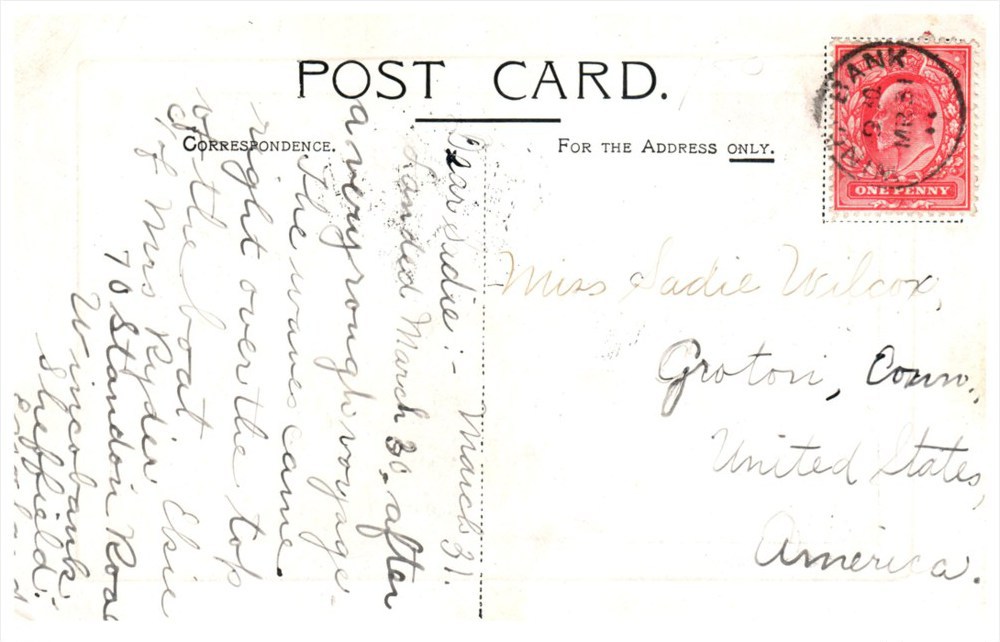 POST CARD.
CORRESPONDENCE.
FOR THE ADDRESS ONLY.
BANK
9
MR 31
ONE PENNY
Dear Sadie:- March 31.
Landed March 30. after
a very rough voyage.
The waves came
right over the top
of the boat Elsie
c/o Mrs Ryder
70 Standon Roa
Wincobank
Sheffield.
Miss Sadie Wilcox,
Groton, Conn.,
United States,
America.